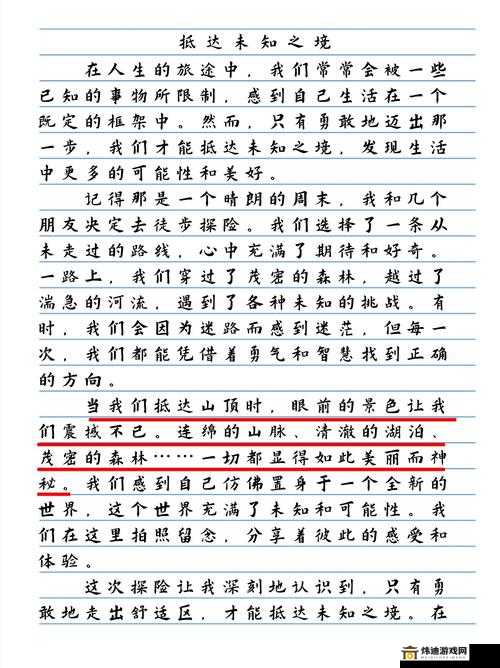 抵达未知之境
在人生的旅途中，我们常常会被一些
己知的事物所限制，感到自己生活在一个
既定的框架中。然而，只有勇敢地迈出那
一步，我们才能抵达未知之境，发现生活
中更多的可能性和美好。
记得那是一个晴朗的周末，我和几个
朋友决定去徒步探险。我们选择了一条从
未走过的路线，心中充满了期待和好奇。
一路上，我们穿过了茂密的森林，越过了
湍急的河流，遇到了各种未知的挑战。有
时，我们会因为迷路而感到迷茫，但每一
次，我们都能凭借着勇气和智慧找到正确
的方向。
当我们抵达山顶时，眼前的景色让我
们震撼不已。连绵的山脉、清澈的湖泊、
茂密的森林……一切都显得如此美丽而神
秘。我们感到自己仿佛置身于一个全新的
世界，这个世界充满了未知和可能性。我
们在这里拍照留念，分享着彼此的感受和
体验。
这次探险让我深刻地认识到，只有勇
敢地走出舒适区，才能抵达未知之境。在
炜迪游戏网